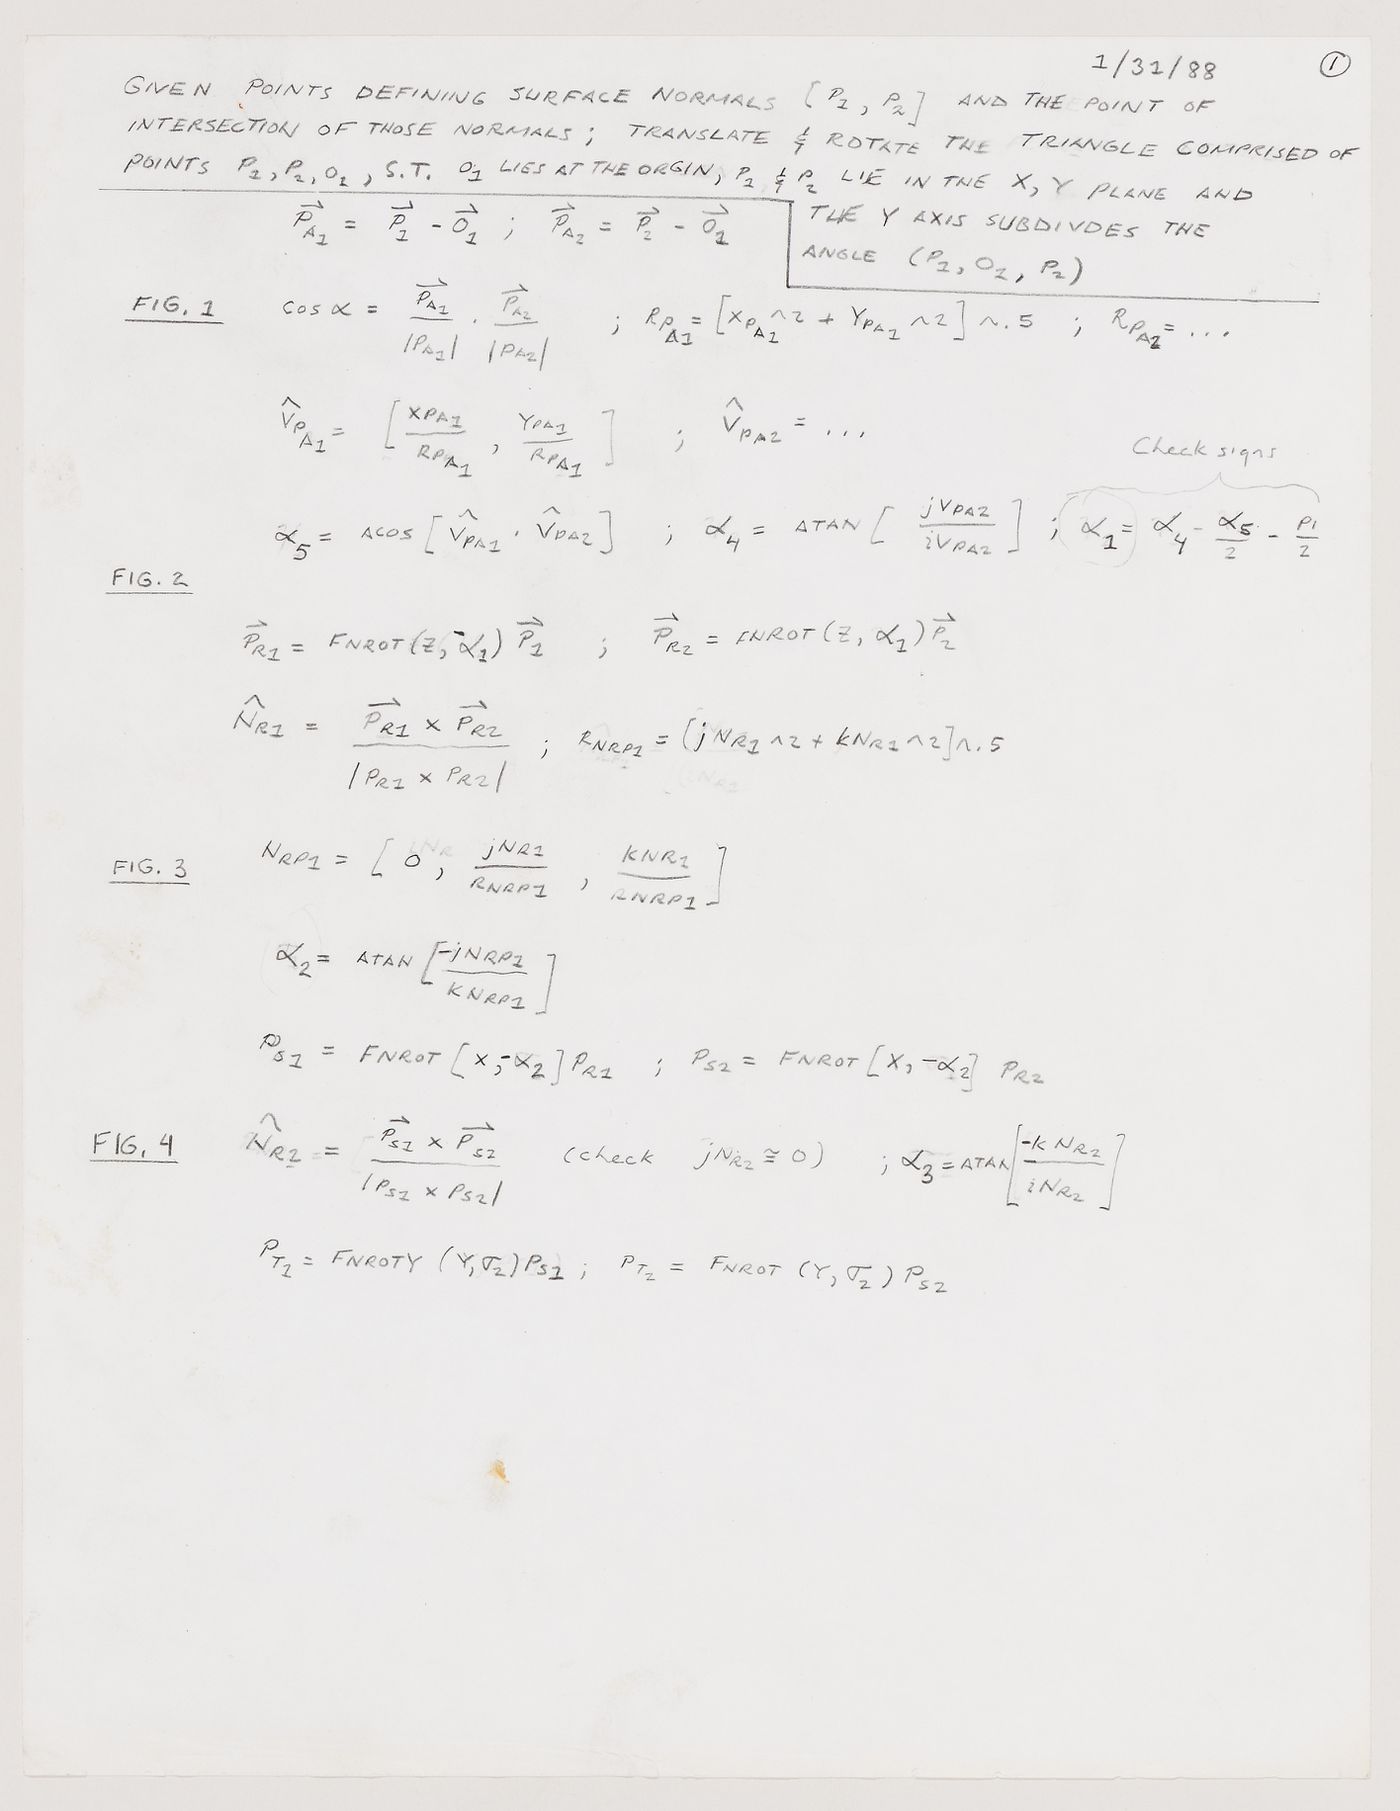 1/31/88 ①
GIVEN POINTS DEFINING SURFACE NORMALS [P₁, P₂] AND THE POINT OF
INTERSECTION OF THOSE NORMALS; TRANSLATE & ROTATE THE TRIANGLE COMPRISED OF
POINTS P₁, P₂, O₁, S.T. O₁ LIES AT THE ORGIN, P₁ & P₂ LIE IN THE X, Y PLANE AND
THE Y AXIS SUBDIVDES THE
ANGLE (P₁, O₁, P₂)
P⃗A1 = P⃗1 - O⃗1 ; P⃗A2 = P⃗2 - O⃗1
FIG. 1 COS α = P⃗A1/|PA1| · P⃗A2/|PA2| ; RPA1 = [XPA1 ^2 + YPA1 ^2] ^.5 ; RPA2 = ...
V̂PA1 = [XPA1/RPA1 , YPA1/RPA1] ; V̂PA2 = ...
Check signs
α5 = ACOS [V̂PA1 · V̂PA2] ; α4 = ATAN [jVPA2/iVPA2] ; α1 = α4 - α5/2 - PI/2
FIG. 2
P⃗R1 = FNROT(Z, -α1) P⃗1 ; P⃗R2 = FNROT(Z, α1) P⃗2
N̂R1 = P⃗R1 x P⃗R2/|PR1 x PR2| ; RNRP1 = [jNR1 ^2 + kNR1 ^2] ^.5
FIG. 3 NRP1 = [0, jNR1/RNRP1 , KNR1/RNRP1]
α2 = ATAN [-jNRP1/KNRP1]
PS1 = FNROT [X, -α2] PR1 ; PS2 = FNROT [X, -α2] PR2
FIG. 4 N̂R2 = P⃗S1 x P⃗S2/|PS1 x PS2| (check jNR2 ≅ 0) ; α3 = ATAN [-k NR2/iNR2]
PT1 = FNROTY (Y, σ2) PS1 ; PT2 = FNROT (Y, σ2) PS2